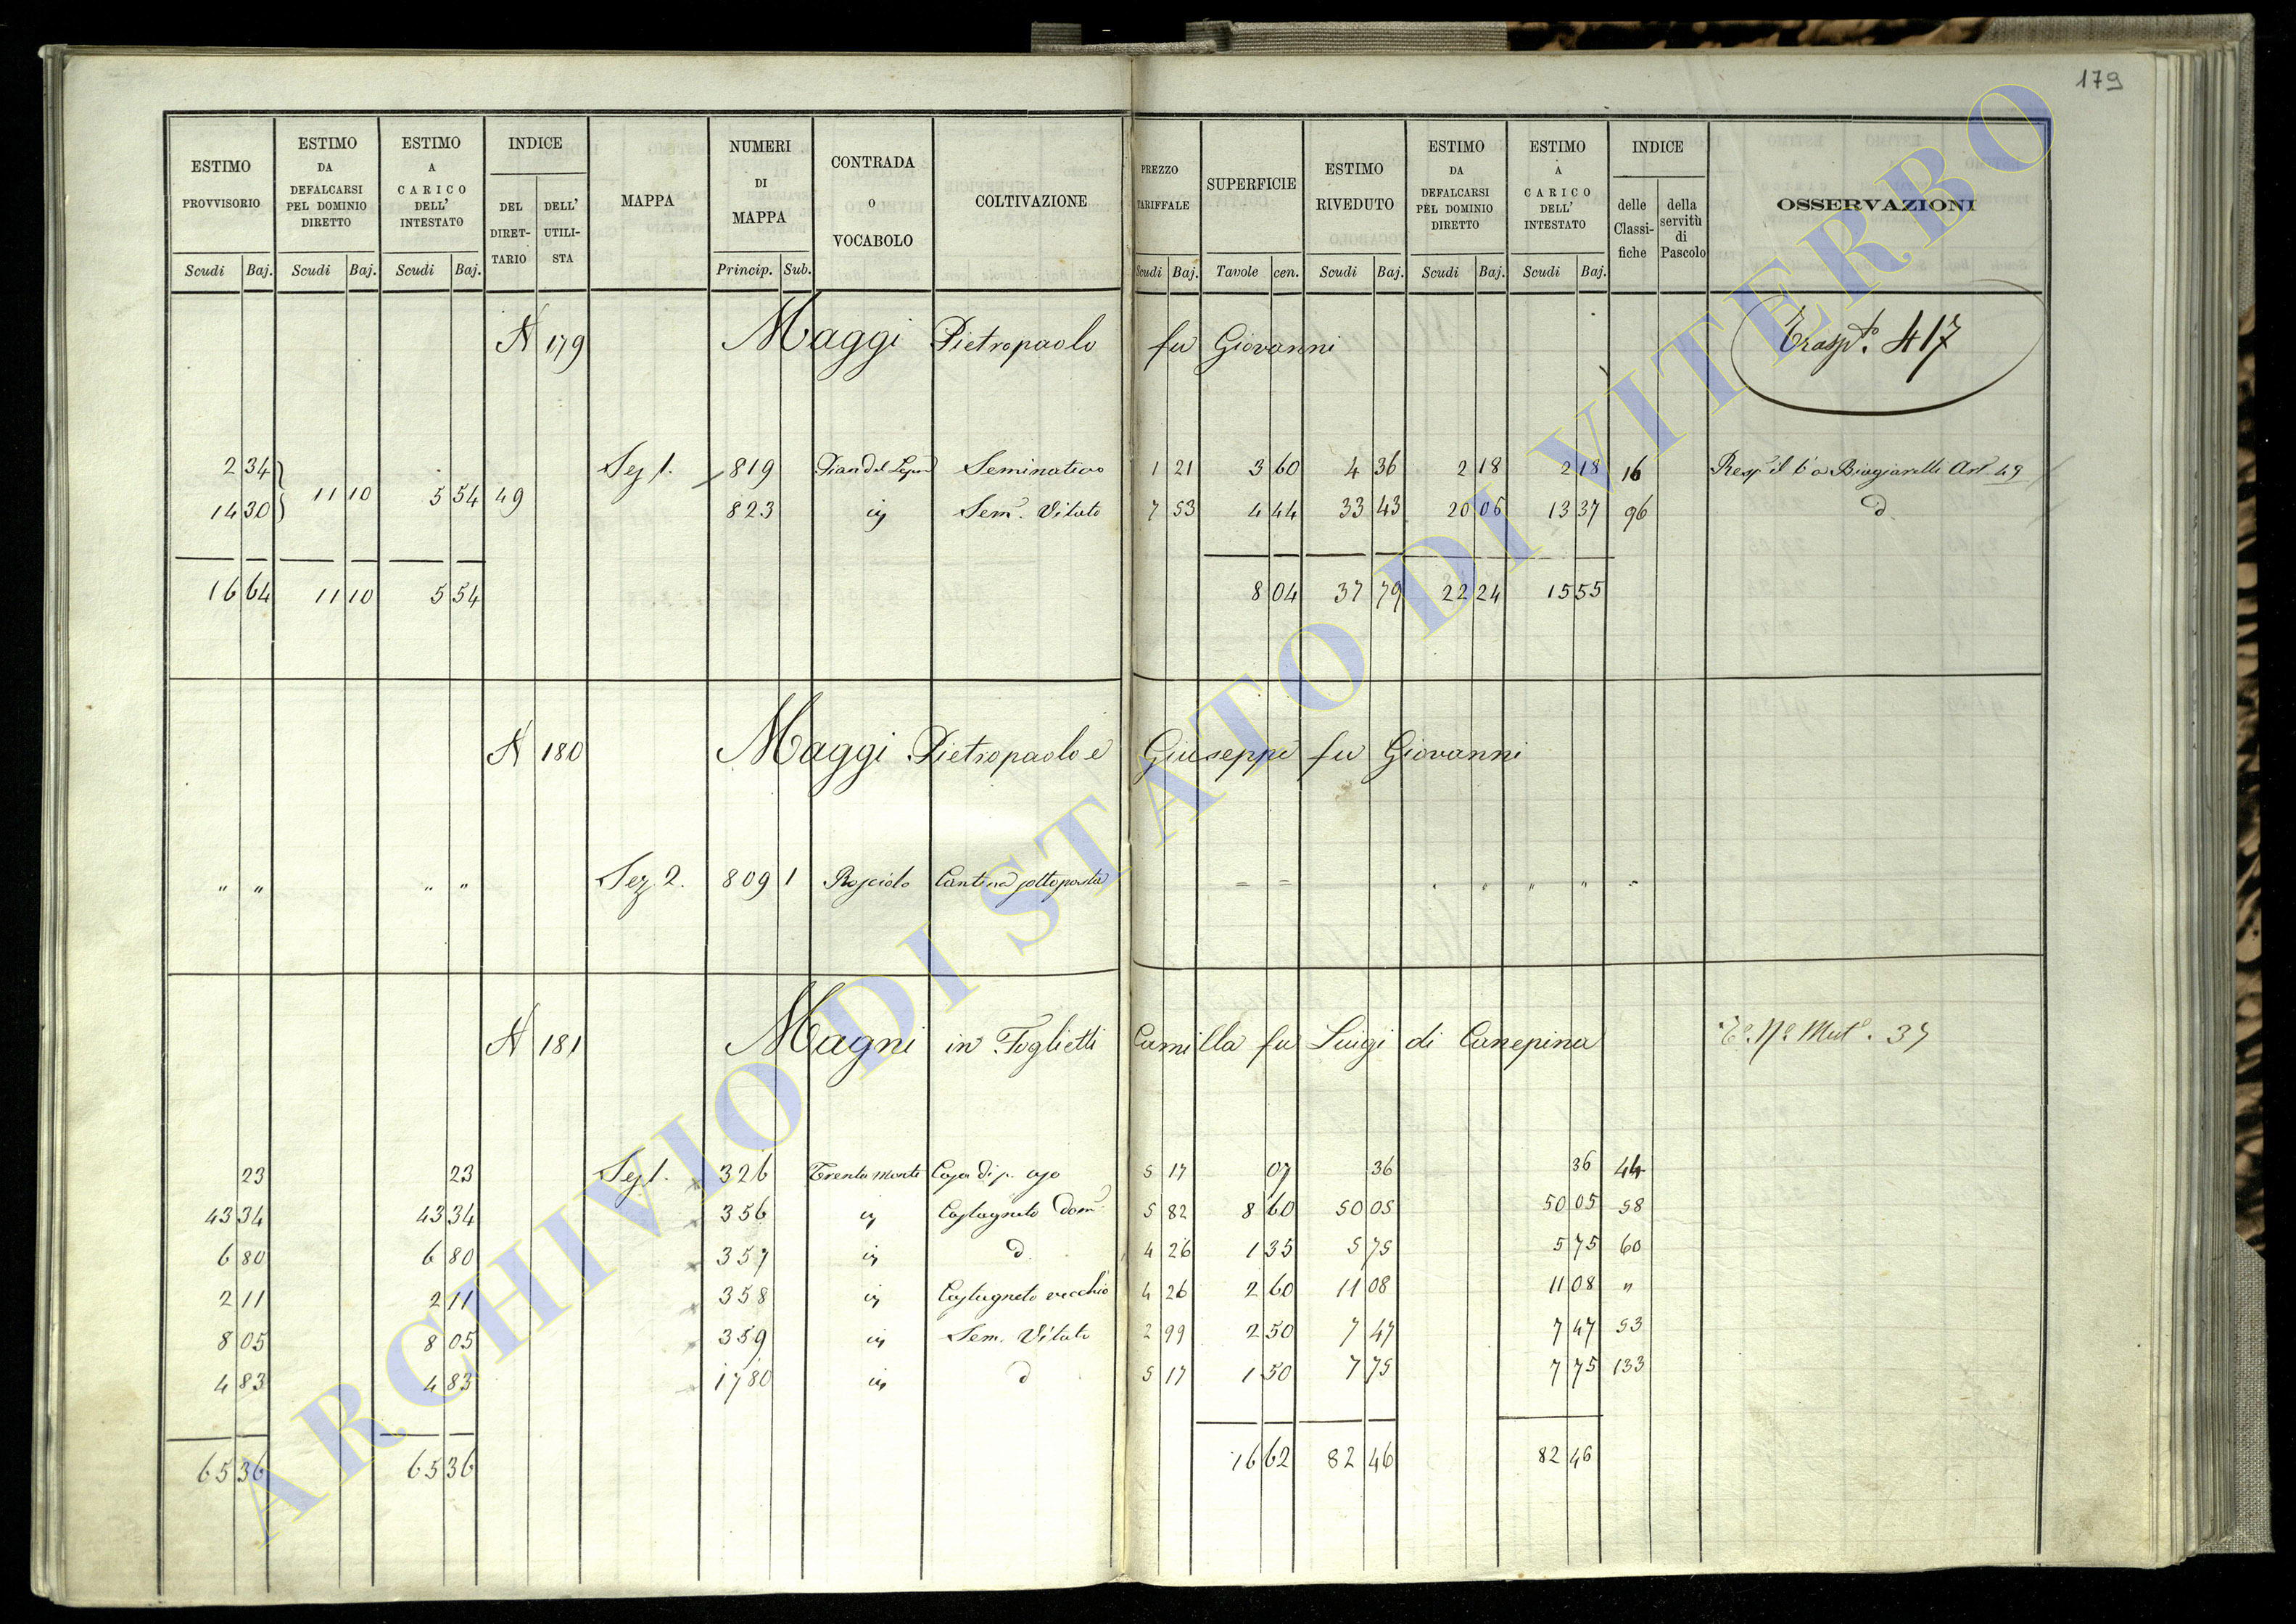 179
ESTIMO PROVVISORIO Scudi Baj.
ESTIMO DA DEFALCARSI PEL DOMINIO DIRETTO Scudi Baj.
ESTIMO A CARICO DELL' INTESTATO Scudi Baj.
INDICE DEL DIRET-TARIO DELL' UTILI-STA
MAPPA
NUMERI DI MAPPA Princip. Sub.
CONTRADA O VOCABOLO
COLTIVAZIONE
PREZZO TARIFFALE Scudi Baj.
SUPERFICIE Tavole cen.
ESTIMO RIVEDUTO Scudi Baj.
ESTIMO DA DEFALCARSI PEL DOMINIO DIRETTO Scudi Baj.
ESTIMO A CARICO DELL' INTESTATO Scudi Baj.
INDICE delle Classi-fiche della servitù di Pascolo
OSSERVAZIONI
N 179 Maggi Pietropaolo fu Giovanni Trasp.to 417
2 34 Sez 1. 819 Pian del Seminativo 1 21 3 60 4 36 2 18 2 18 16 Biagiarelli Art 49
11 10 5 54 49
14 30 823 iv Sem. Vitato 7 53 4 44 33 43 20 06 13 37 96 d
16 64 11 10 5 54 8 04 37 79 22 24 15 55
N 180 Maggi Pietropaolo e Giuseppe fu Giovanni
" " " " Sez. 2. 809 1 Rosciolo Cantina sottoposta = = " " " "
N 181 Magni in Foglietti Camilla fu Luigi di Canepina N° Mut. 37
23 23 Sez 1. 326 Trenta monti Casa di p. uso 5 17 07 36 36 44
43 34 43 34 356 iv Castagneto Dom. 5 82 8 60 50 05 50 05 58
6 80 6 80 357 iv d. 4 26 1 35 5 75 5 75 60
2 11 2 11 358 iv Castagneto vecchio 4 26 2 60 11 08 11 08 "
8 05 8 05 359 iv Sem. Vitato 2 99 2 50 7 47 7 47 53
4 83 4 83 1780 iv d 5 17 1 50 7 75 7 75 133
65 36 65 36 16 62 82 46 82 46
ARCHIVIO DI STATO DI VITERBO